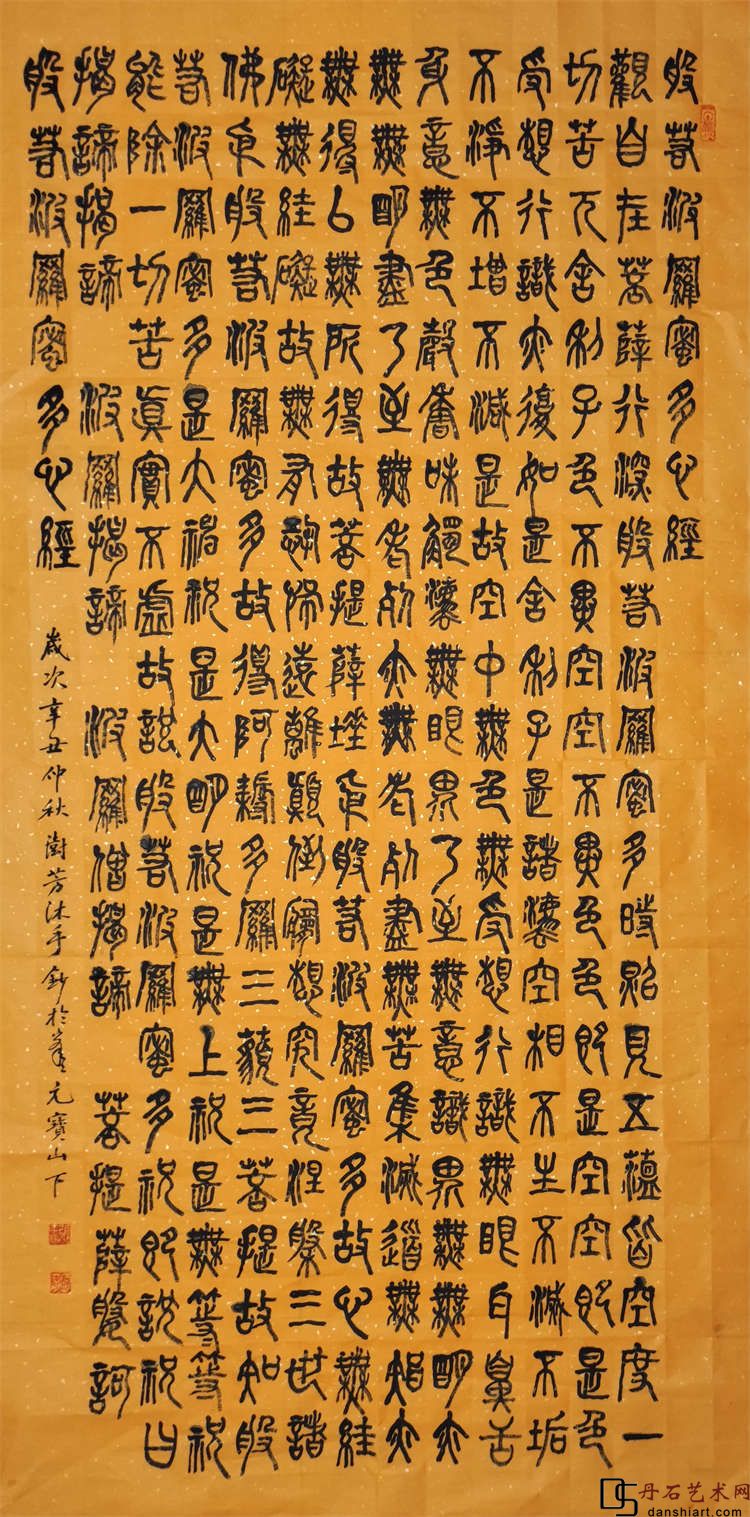 般若波羅蜜多心經
觀自在菩薩行深般若波羅蜜多時照見五蘊皆空度一
切苦厄舍利子色不異空空不異色色即是空空即是色
受想行識亦復如是舍利子是諸法空相不生不滅不垢
不淨不增不減是故空中無色無受想行識無眼耳鼻舌
身意無色聲香味觸法無眼界乃至無意識界無無明亦
無無明盡乃至無老死亦無老死盡無苦集滅道無智亦
無得以無所得故菩提薩埵依般若波羅蜜多故心無絓
礙無絓礙故無有恐怖遠離顛倒夢想究竟涅槃三世諸
佛依般若波羅蜜多故得阿耨多羅三藐三菩提故知般
若波羅蜜多是大神祝是大明祝是無上祝是無等等祝
能除一切苦真實不虛故說般若波羅蜜多祝即說祝曰
揭諦揭諦 波羅揭諦 波羅僧揭諦 菩提薩婆訶
般若波羅蜜多心經
歲次辛丑仲秋澍芳沐手鈔於元寶山下
丹石艺术网
danshiart.com